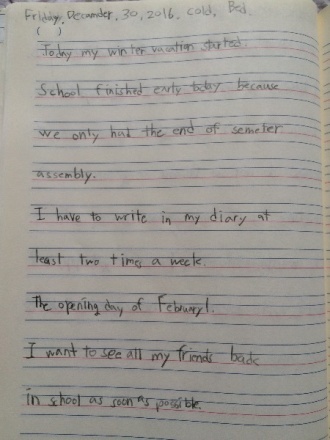 Friday, Decamder, 30, 2016, cold, Bad
( )
Today my winter vacation started.
School finished early today because
we only had the end of semeter
assembly.
I have to write in my diary at
least two times a week.
The opening day of February 1.
I want to see all my friends back
in school as soon as possible